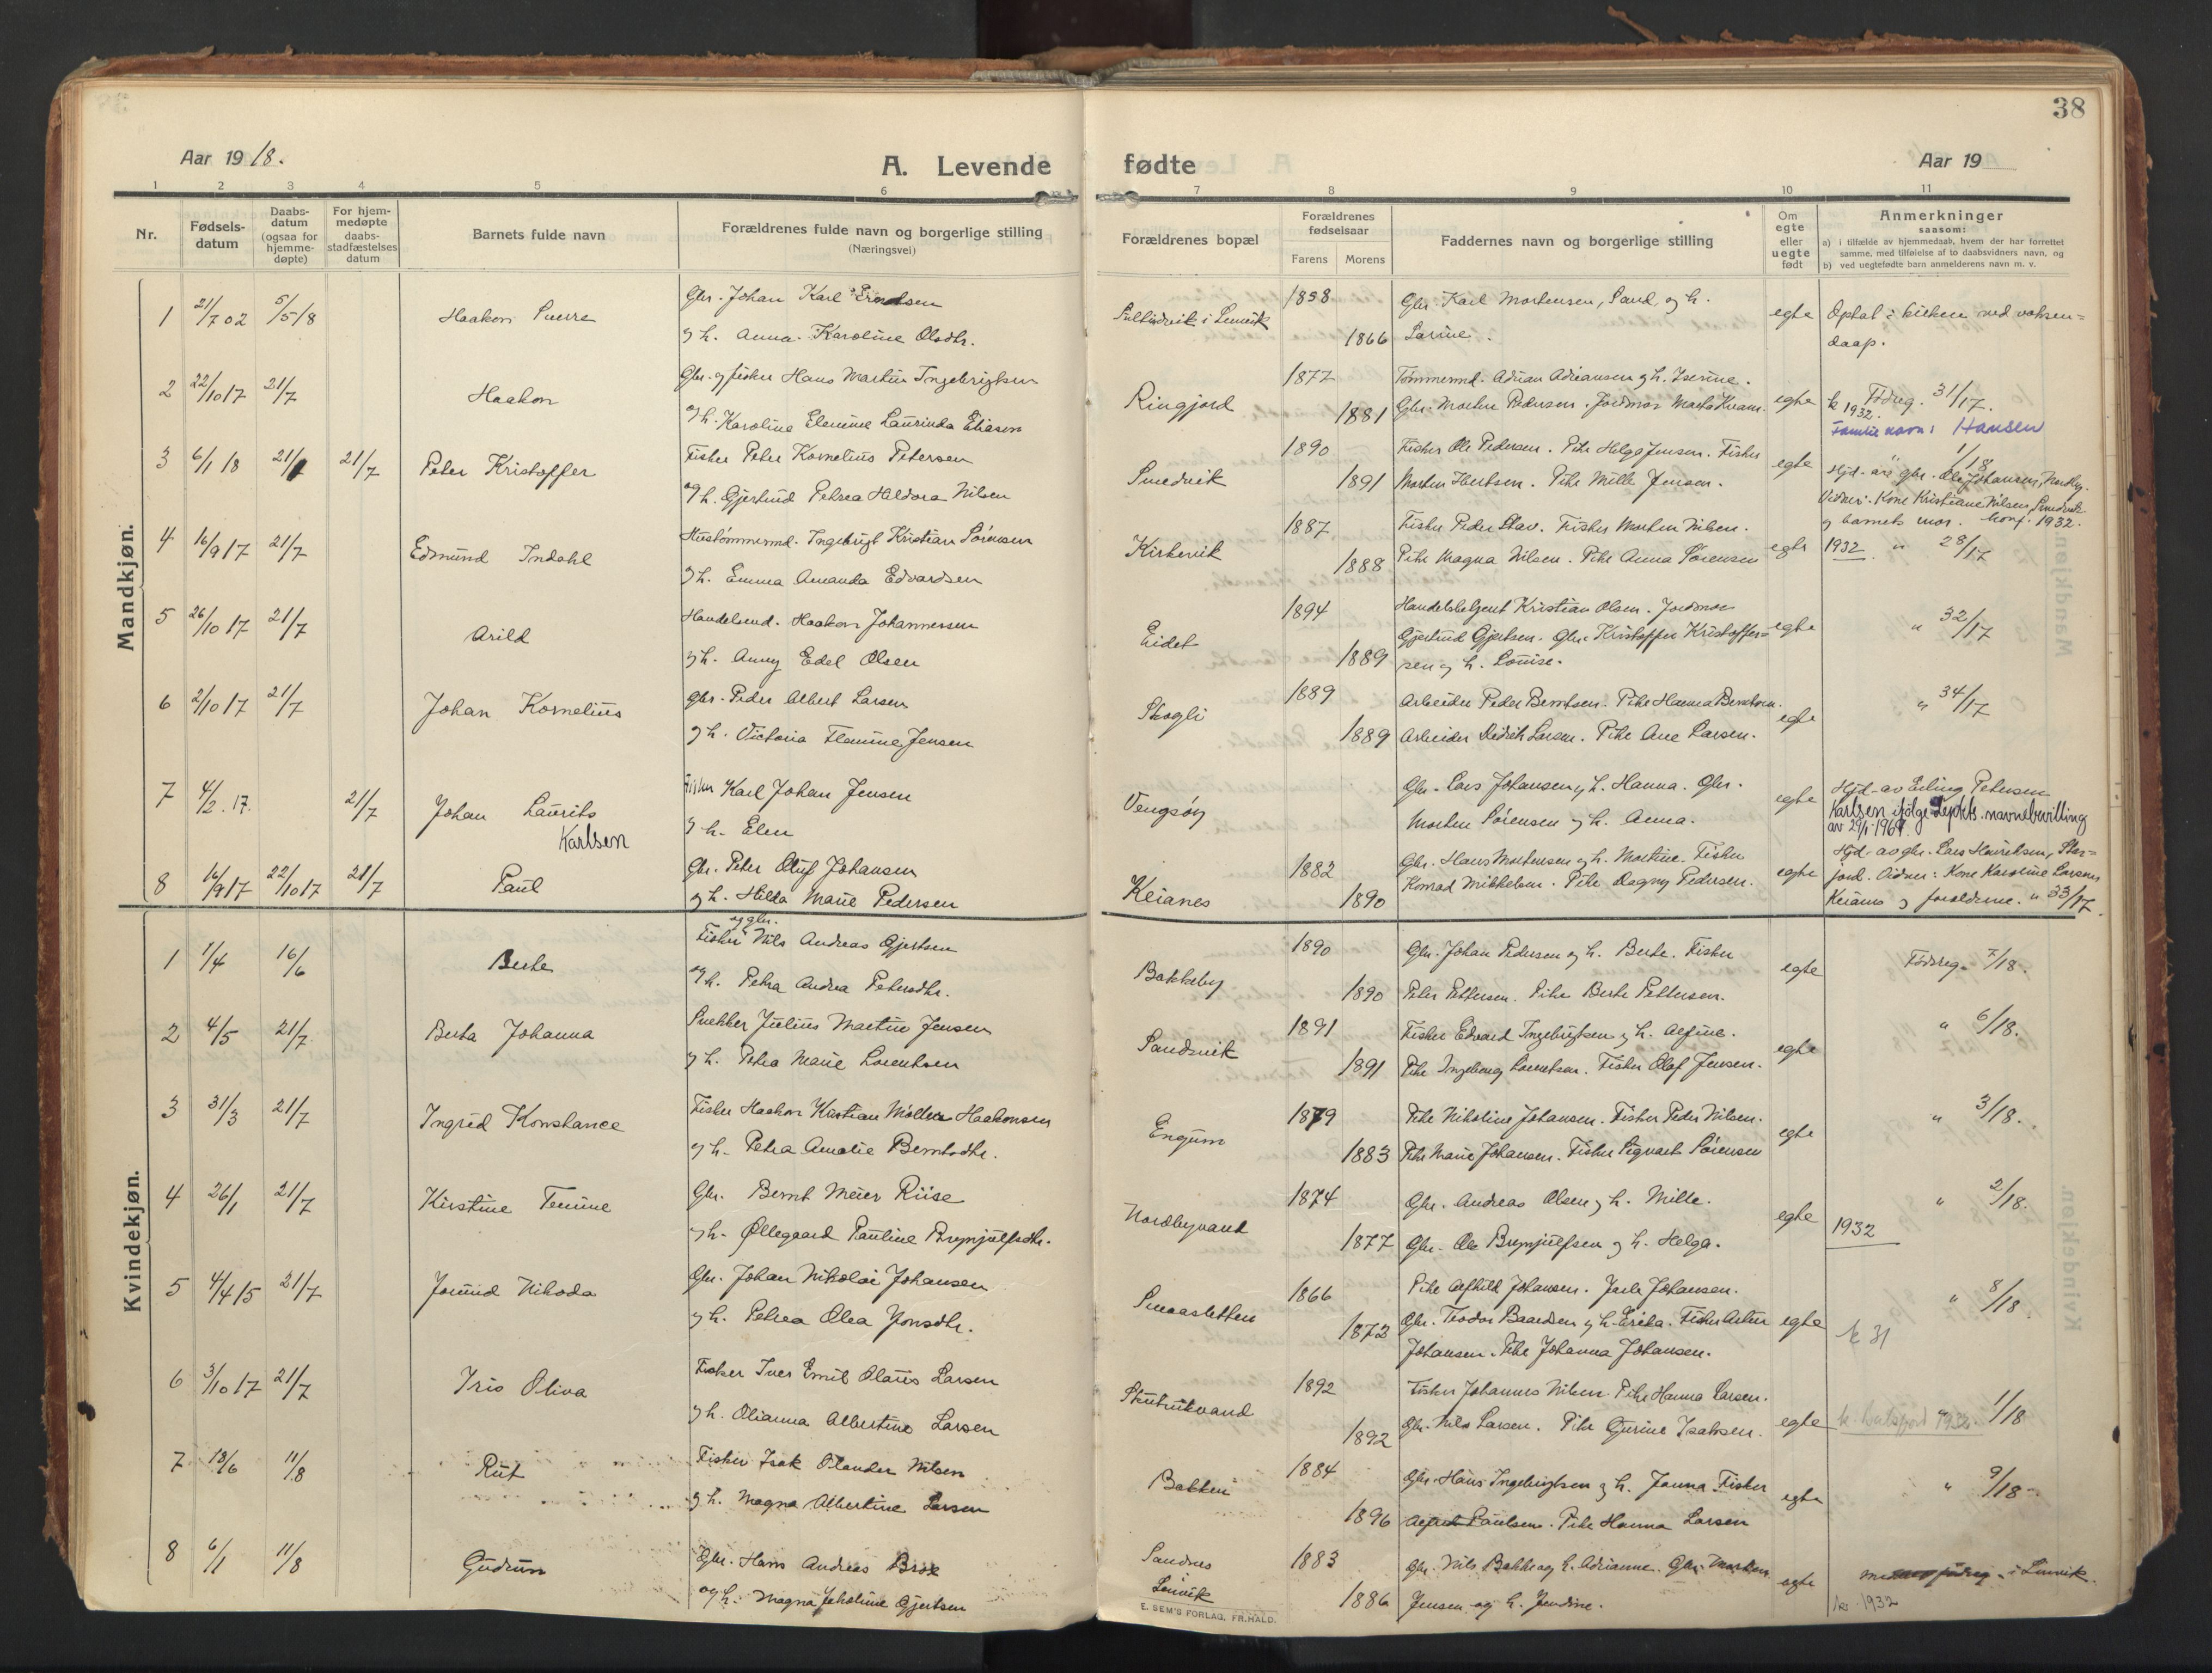 38
Aar 1918.
A. Levende
fødte
Aar 19
1 2 3 4 5 6 7 8 9 10 11
Nr.
Fødsels-
datum
Daabs-
datum
(ogsaa for
hjemme-
døpte)
For hjem-
medøpte
daabs-
stadfæstelses
datum
Barnets fulde navn
Forældrenes fulde navn og borgerlige stilling
(Næringsvei)
Forældrenes bopæl
Forældrenes
fødselsaar
Farens Morens
Faddernes navn og borgerlige stilling
Om
egte
eller
uegte
født
Anmerkninger
saasom:
a) i tilfælde av hjemmedaab, hvem der har forrettet
samme, med tilføielse av to daabsvidners navn, og
b) ved uegtefødte barn anmelderens navn m. v.
Mandkjøn.
1 21/7 02 5/5 18 Haakon Sverre
Gbr. Johan Karl
og h. Anna Karoline Olsdtr.
i Lenvik 1858 1866
Gbr. Karl Mortensen, Sand og h.
Larine.
egte
Optat i kirken ved voksen-
daap.
2 22/10 17 21/7 Haakon
Gbr. og fisker Hans Martin Ingebrigtsen
og h. Karoline Elenine Laurinda Eliasen
Ringfjord 1877 1881
Tømmermd. Adrian Adriansen og h. Iserine.
Gbr. Morten Pedersen. Jordmor Marta Kræm.
egte
Fødreg. 31/17.
k 1932.
Familienavn: Hansen
3 6/1 18 21/7 21/7 Peter Kristoffer
Fisker Peter Kornelius Petersen
og h. Gjertrud Petrea Heldora Nilsen
Smedvik 1890 1891
Fisker Ole Pedersen. Pike Helga Jensen. Fisker
Morten Hertsen. Pike Mille Jensen.
egte
1/18
Hjd. av gbr. Ole Johansen, Nordby.
Vidner: Kone Kristiane Nilsen, Smedvik
og barnets mor. konf. 1932.
4 16/9 17 21/7 Edmund Indahl
Hustømmermd. Ingebrigt Kristian Sørensen
og h. Emma Amanda Edvardsen
Kirkevik 1887 1888
Fisker Peder Stav. Fisker Morten Nilsen.
Pike Magna Nilsen. Pike Anna Sørensen
egte
1932 " 28/17
5 26/10 17 21/7 Arild
Handelsmd. Haakon Johannessen
og h. Anny Edel Olsen
Eidet 1894 1889
Handelsbetjent Kristian Olsen. Jordmor
Gjertrud Gjertsen. Gbr. Kristoffer Kristoffer-
sen og h. Louise.
egte
" 32/17
6 2/10 17 21/7 Johan Kornelius
Gbr. Peder Albert Larsen
og h. Victoria Flamine Jensen
Skogli 1889 1889
Arbeider Peder Berntsen. Pike Hanna Berntsen.
Arbeider Didrik Larsen. Pike Ane Larsen.
egte
" 34/17
7 4/2. 17. 21/7 Johan Laurits
Karlsen
Fisker Karl Johan Jensen
og h. Elen
Vengsøy
Gbr. Lars Johansen og h. Hanna. Gbr.
Morten Sørensen og h. Anna.
egte
Hjd. av Erling Petersen
Karlsen ifølge Depkts. navnebevilling
av 29/1-1969.
8 16/9 17 22/10 17 21/7 Paul
Gbr. Peter Oluf Johansen
og h. Hilda Marie Pedersen
Keianes 1882 1890
Gbr. Hans Mortensen og h. Martine. Fisker
Konrad Mikkelsen. Pike Dagny Pedersen.
egte
Hjd. av gbr. Lars Henriksen, Stor-
fjord. Vidner: Kone Karoline Larsen,
Keianes og forældrene. " 33/17.
Kvindekjøn.
1 1/4 16/6 Berte
og gbr.
Fisker Nils Andreas Gjertsen
og h. Petra Andrea Petersdtr.
Bakkeby 1890 1890
Gbr. Johan Pedersen og h. Berte. Fisker
Peter Pettersen. Pike Berte Pettersen.
egte
Fødreg. 7/18.
2 4/5 21/7 Berta Johanna
Snekker Julius Martin Jensen
og h. Petra Marie Lorentsen
Sandvik 1891 1891
Fisker Edvard Ingebrigtsen og h. Alfine.
Pike Ingeborg Lorentsen. Fisker Olaf Jensen.
egte
" 6/18.
3 31/3 21/7 Ingrid Konstance
Fisker Haakon Kristian Møller Haakonsen
og h. Petra Amalie Berntsdtr.
Engum 1879 1883
Pike Nikoline Johansen. Fisker Peder Nilsen.
Pike Marie Johansen. Fisker Sigvart Sørensen
egte
" 3/18.
4 26/1 21/7 Kirstine Temine
Gbr. Bernt Meier Riise
og h. Øllegaard Pauline Brynjulfsdtr.
Nordbyvand 1874 1877
Gbr. Andreas Olsen og h. Mille.
Gbr. Ole Brynjulfsen og h. Helga.
egte
" 2/18.
1932
5 4/4 15 21/7 Jorund Nikoda
Gbr. Johan Nikolai Johansen
og h. Petrea Olea Jonsdtr.
Smaasletten 1866 1872
Pike Alfhild Johansen. Jarle Johansen.
Gbr. Teodor Baardsen og h. Erika. Fisker Artur
Johansen. Pike Johanna Johansen.
egte
" 8/18
k 31
6 3/10 17 21/7 Iris Oliva
Fisker Iver Emil Olaus Larsen
og h. Olianna Albertine Larsen
Skutvikvand 1892 1892
Fisker Johannes Nilsen. Pike Hanna Larsen.
Gbr. Nils Larsen. Pike Gurine Isaksen.
egte
k. Balsfjord 1932. 1/18
7 18/6 11/8 Rut
Fisker Isak Olander Nilsen
og h. Magna Albertine Larsen
Bakken 1884 1896
Gbr. Hans Ingebrigtsen og h. Janna. Fisker
Alfred Paulsen. Pike Hanna Larsen
egte
" 9/18
8 6/1 11/8 Gudrun
Gbr. Hans Andreas Brox
og h. Magna Jekoline Gjertsen
Sandnes
i
Lenvik 1883 1886
Gbr. Nils Bakke og h. Adrianne. Gbr. Morten
Jensen og h. Jendine.
egte
i Lenvik.
k. 1932
E. SEM'S FORLAG, FR.HALD.